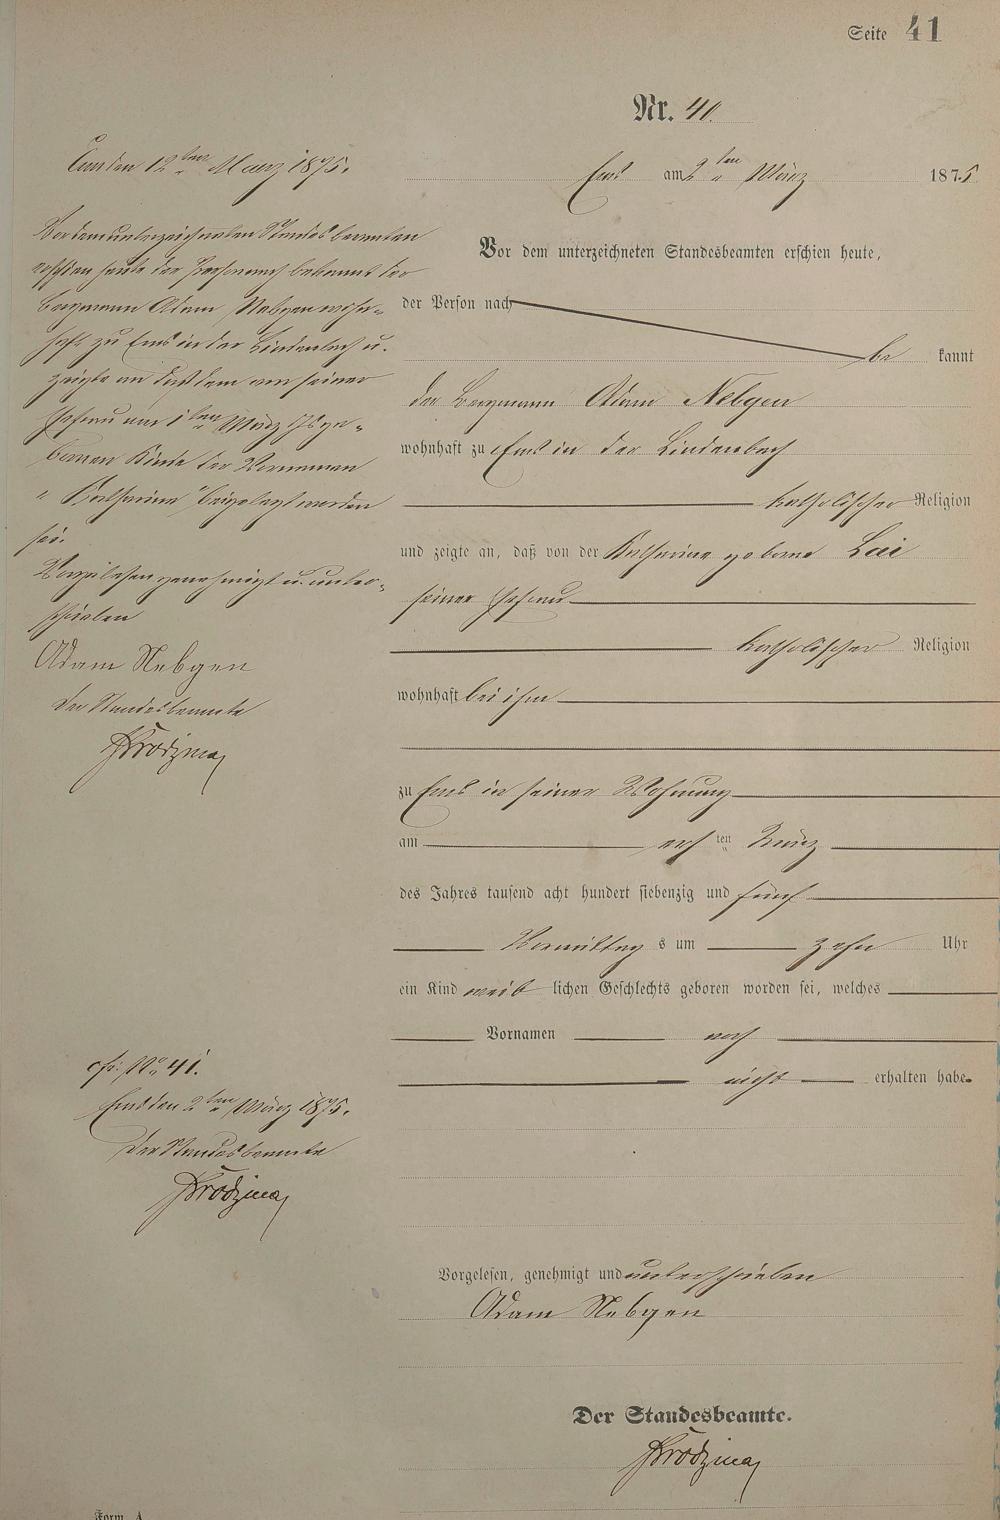 Seite 41
Nr. 40.
Ems am 2ten März 1875
Vor dem unterzeichneten Standesbeamten erschien heute,
der Person nach
be kannt
der Bergmann Adam Nebgen
wohnhaft zu Ems in der Lindenbach
katholischer Religion
und zeigte an, daß von der Katharina geborne Lei
seiner Ehefrau
katholischer Religion
wohnhaft bei ihm
zu Ems in seiner Wohnung
am ersten März
des Jahres tausend acht hundert siebenzig und fünf
Vormittags um zehn Uhr
ein Kind weiblichen Geschlechts geboren worden sei, welches
Vornamen noch
nicht erhalten habe.
Vorgelesen, genehmigt und unterschrieben
Adam Nebgen
Der Standesbeamte.
Ems den 12ten Maerz 1875.
Vor dem unterzeichneten Standesbeamten
erschien heute der Person nach bekannt der
Bergmann Adam Nebgen wohn-
haft zu Ems in der Lindenbach u.
zeigte an daß dem von seiner
Ehefrau am 1ten März Js ge-
bornen Kinde der Vornamen
"Katharina" beigelegt worden
sei.
Vorgelesen genehmigt u. unter-
schrieben
Adam Nebgen
Der Standesbeamte
cfr. No 41.
Ems den 2ten März 1875.
Der Standesbeamte
Form. A.